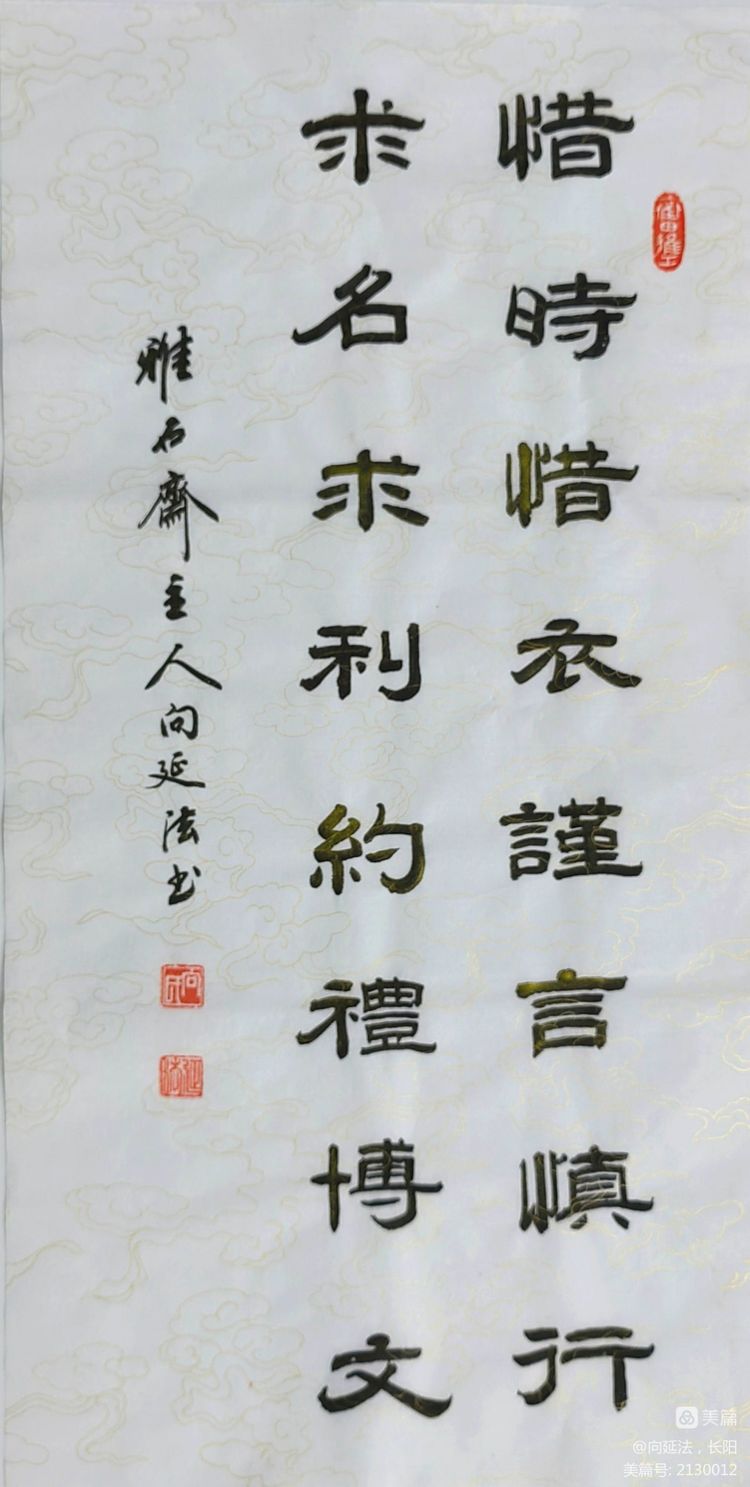 惜時惜衣謹言慎行
求名求利約禮博文
雅石齋主人向延法书
美篇
@向延法，长阳
美篇号: 2130012